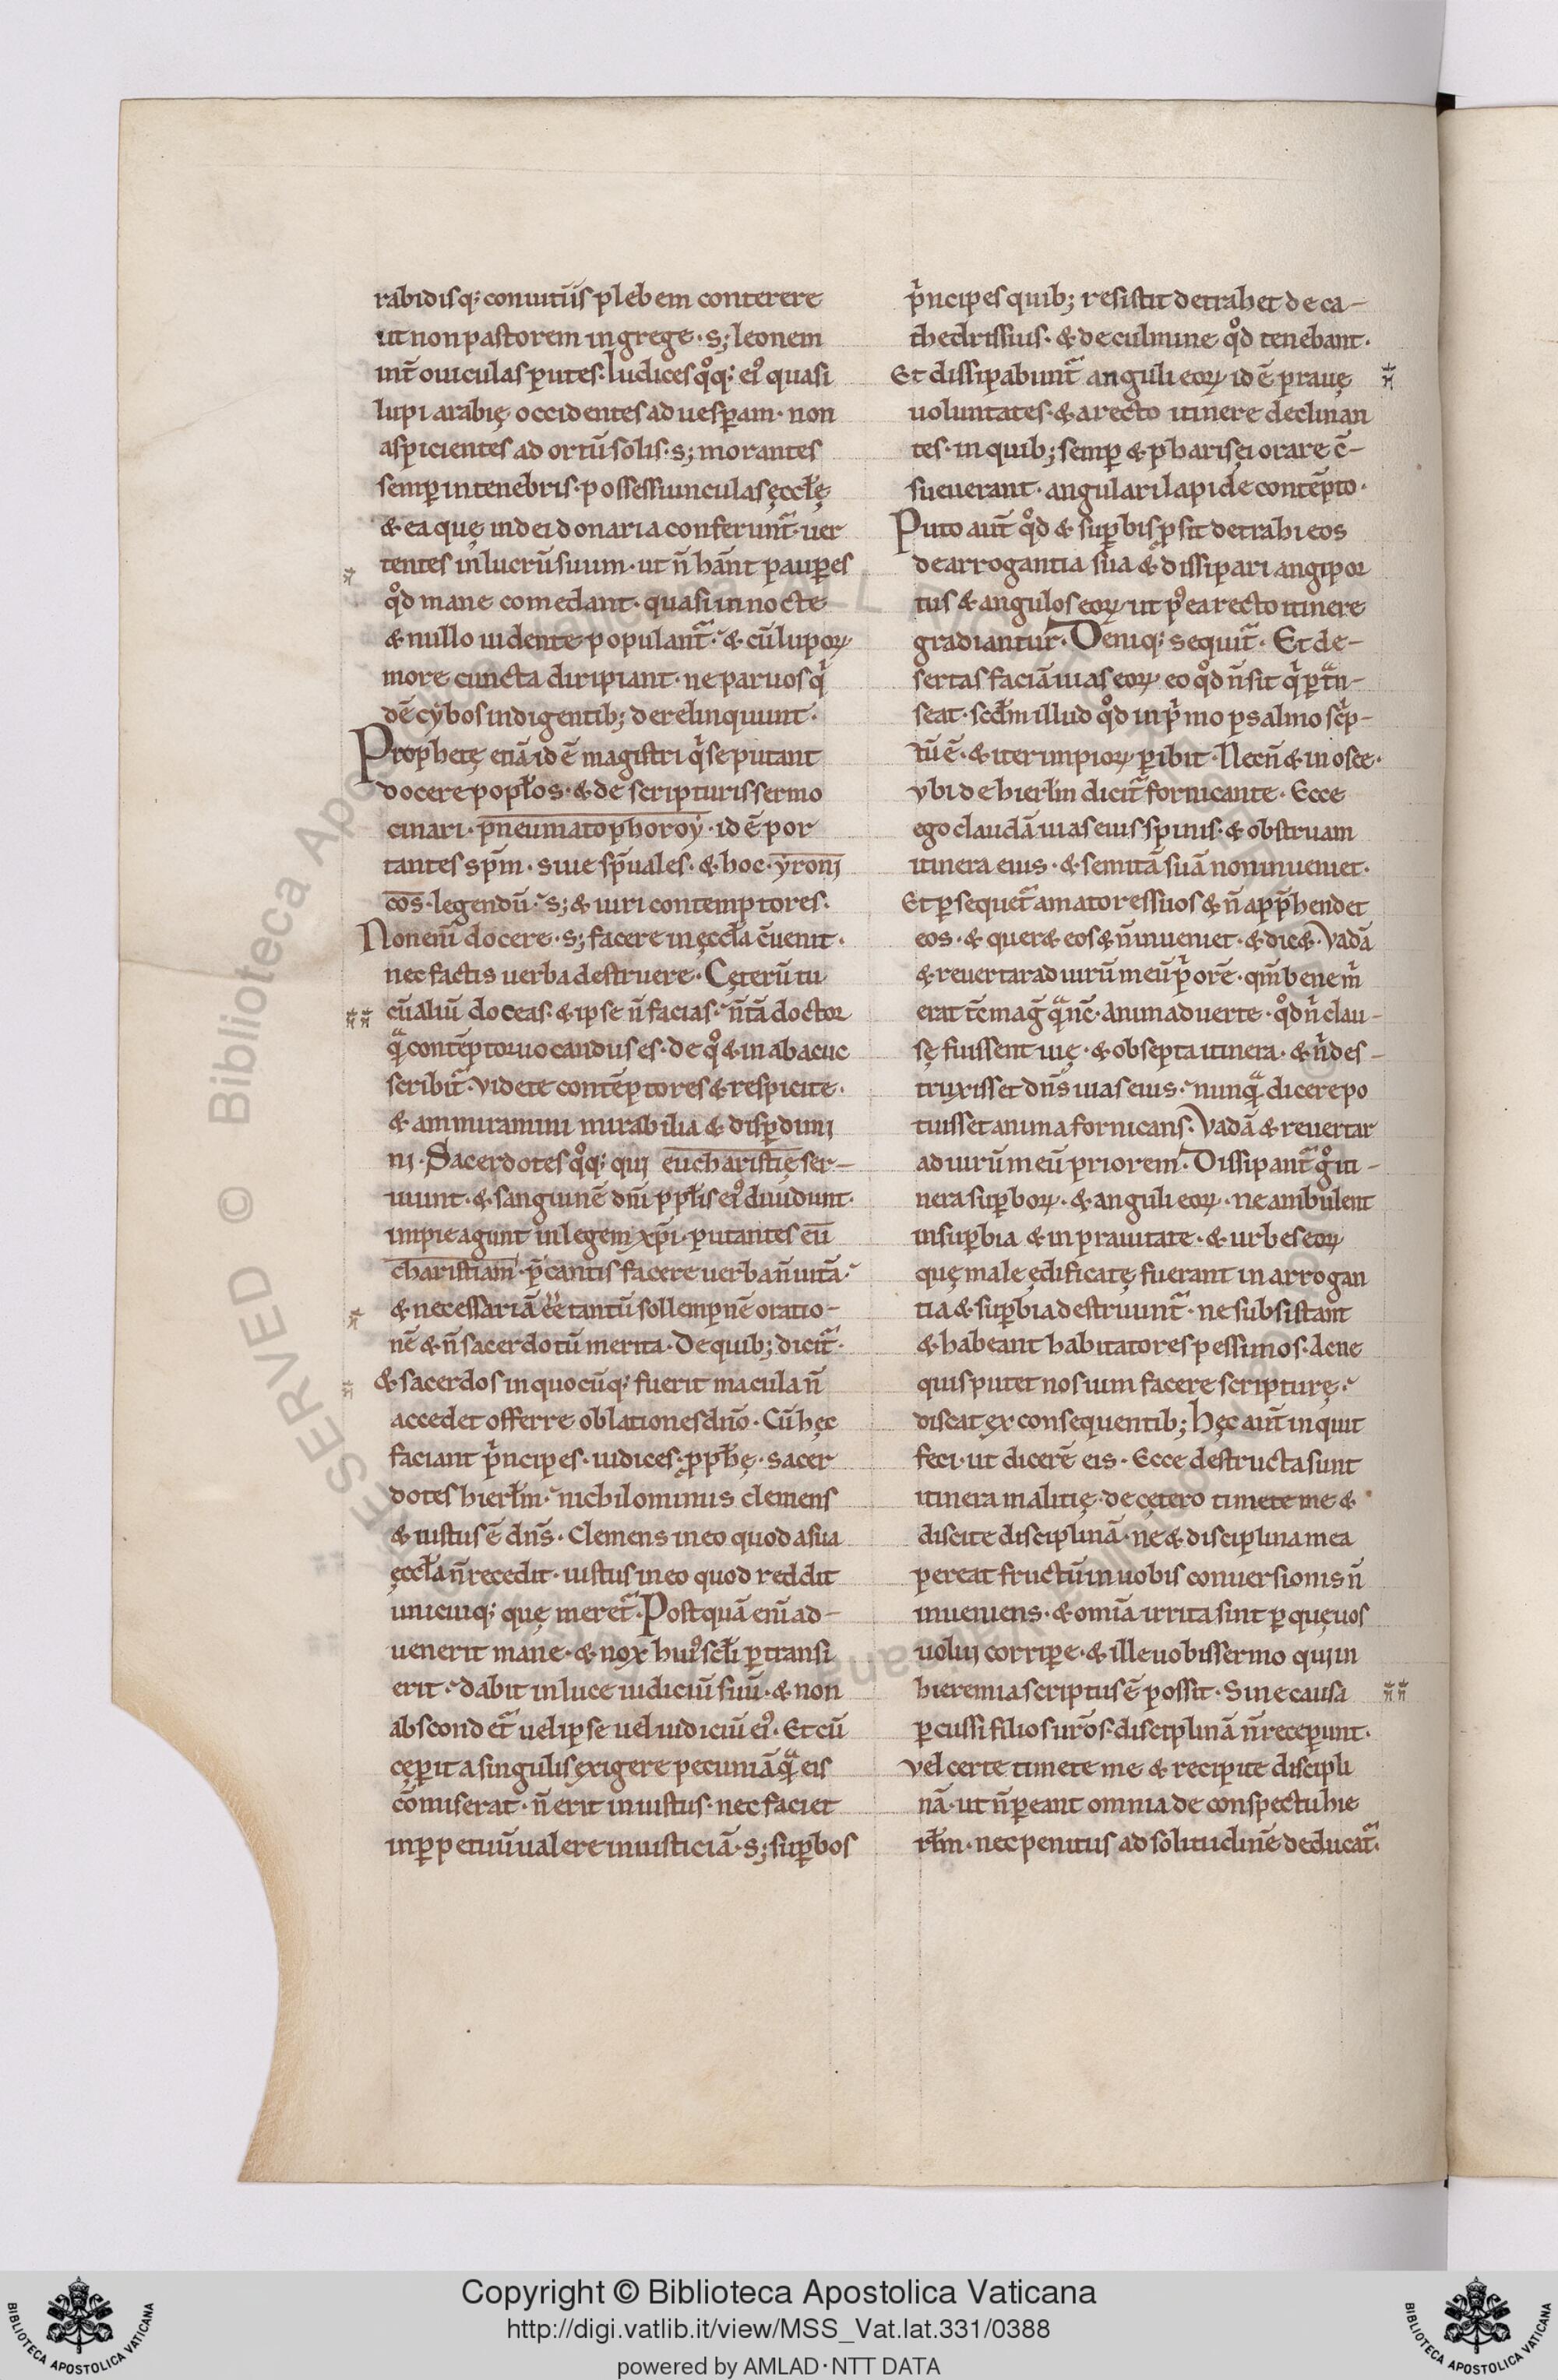 rabidisq; conuitiis plebem conterere
ut non pastorem in grege · s; leonem
int̄ ouiculas putes. Iudices qͦq; eiꝰ quasi
lupi arabię occidentes ad uesꝑam · non
aspicientes ad ortū solis · s; morantes
semꝑ in tenebris · possessiunculas ęccłę
& ea quę in dei donaria conferunt᷑ · uer
tentes in lucrū suum · ut n̄ hānt pauꝑes
qͦd mane comedant · quasi in nocte
& nullo uidente populant᷑ · & cū lupoꝝ
more cuncta diripiant · ne paruos qͥ
dē cybos indigentib; derelinquunt ·
Prophetę etiā id ē magistri qͥ se putant
docere popłos · & de scripturis sermo
cinari · pneumatophoroy · id ē por
tantes sp̄m · siue sp̄uales · & hoc · yronj
cos · legendū · s; & uiri contemptores ·
Non enī docere · s; facere in ęccła c̄uenit ·
nec factis uerba destruere · Cęterū tu
cū aliū doceas · & ipse n̄ facias · n̄ tā doctor
qͣ contēptor uocandus es · de qͦ & in abacuc
scribit᷑ · Videte contēptores & respicite ·
& ammiramini mirabilia & disꝑdimi
ni · Sacerdotes qͦq; quj eucharistię ser-
uiunt · & sanguinē dn̄i ppłis eiꝰ diuidunt ·
impie agunt in legem xp̄i · putantes eu
charistiam · p̄cantis facere uerba n̄ uitā ·
& necessariā ēē tantū sollempnē oratio-
nē & n̄ sacerdotū merita · De quib; dicit᷑ ·
& sacerdos in quocūq; fuerit macula n̄
accedet offerre oblationes dn̄o · Cū hęc
faciant pͥncipes · iudices · ꝓphę · sacer
dotes hierłm · nichilominus clemens
& iustus ē dn̄s · Clemens in eo quod a sua
ęccła n̄ recedit · iustus in eo quod reddit
unicuiq; quę meret᷑ · Postquā enī ad-
uenerit mane · & nox huiꝰ scłi ꝑtransi
erit · dabit in luce iudiciū suū · & non
abscondet᷑ uel ipse uel iudiciū eiꝰ · Et cū
cęꝑit a singulis exigere pecuniā qͣ eis
cōmiserat · n̄ erit iniustus · nec faciet
in ꝑpetuū ualere iniusticiā · s; suꝑbos
pͥncipes quib; resistit detrahet de ca-
thedris suis · & de culmine qͦd tenebant ·
Et dissipabunt᷑ anguli eoꝝ id ē prauę
uoluntates · & a recto itinere declinan
tes · in quib; semꝑ & pharisęi orare c̄-
sueuerant · angulari lapide contēpto ·
Puto aut̄ qͦd & suꝑbis ꝓsit detrahi eos
de arrogantia sua & dissipari angipor
tus & angulos eoꝝ ut pꝰea recto itinere
gradiantur · Deniq; sequit᷑ · Et de-
sertas faciā uias eoꝝ eo qͦd n̄ sit qͥ ꝑtͣn-
seat · scd̄m illud qͦd in pͥmo psalmo sc̄p-
tū ē · & iter impioꝝ ꝑibit · Necn̄ & in osee ·
vbi de hierłm dicit᷑ fornicante · Ecce
ego claudā uias eius spinis · & obstruam
itinera eius · & semitā suā non inueniet ·
Et ꝑsequet᷑ amatores suos & n̄ app̄hendet
eos · & quer& eos & n̄ inueniet · & dic& · Vadā
& reuertar ad uirū meū pͥorē · qm̄ bene mͥ
erat tc̄ magͥ qͣ nc̄ · Animaduerte · qͦd nͥ clau-
sę fuissent uię · & obsepta itinera · & nͥ des-
truxisset dn̄s uias eius · nunqͣ dicere po
tuisset anima fornicans · Vadā & reuertar
ad uirū meū priorem · Dissipant᷑ gͦ iti-
nera suꝑboꝝ · & anguli eoꝝ · ne ambulent
in suꝑbia & in prauitate · & urbes eoꝝ
quę male ędificatę fuerant in arrogan
tia & suꝑbia destruunt᷑ · ne subsistant
& habeant habitatores pessimos · Ac ne
quis putet nos uim facere scripturę ·
discat ex consequentib; Hęc aut̄ inquit
feci · ut dicerē eis · Ecce destructa sunt
itinera malitię · de cętero timete me &
discite disciplinā · ne & disciplina mea
pereat fructū in uobis conuersionis n̄
inueniens · & omīa irrita sint ꝑ quę uos
uoluj corriꝑe · & ille uobis sermo quj in
hieremia scriptus ē possit · Sine causa
ꝑcussi filios ur̄os · disciplinā n̄ receꝑunt ·
Vel certe timete me & recipite discipli
nā · ut n̄ ꝑeant omnia de conspectu hie
rłm · nec penitus ad solitudinē deducat᷑ ·
Copyright © Biblioteca Apostolica Vaticana
http://digi.vatlib.it/view/MSS_Vat.lat.331/0388
powered by AMLAD·NTT DATA
BIBLIOTECA APOSTOLICA VATICANA
BIBLIOTECA APOSTOLICA VATICANA